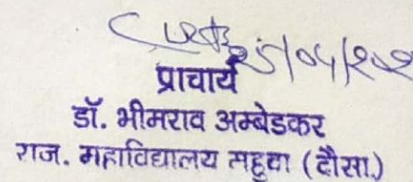 प्राचार्य
डॉ. भीमराव अम्बेडकर
राज. महाविद्यालय महुवा (दौसा)